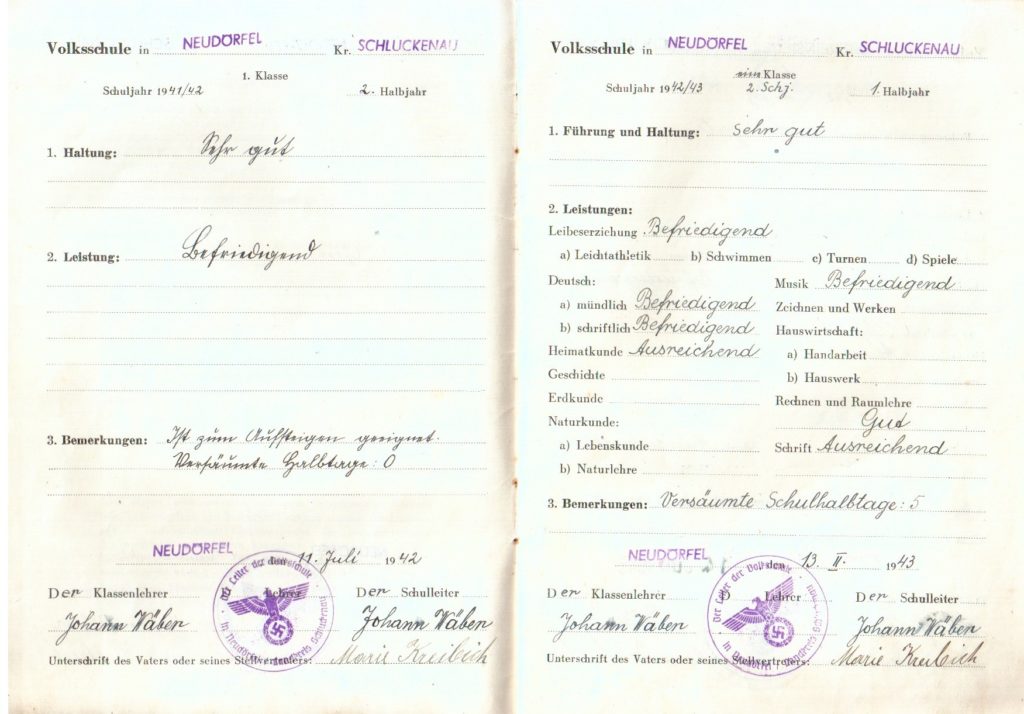 Volksschule in NEUDÖRFEL Kr. SCHLUCKENAU
1. Klasse
Schuljahr 1941/42 2. Halbjahr
1. Haltung: Sehr gut
2. Leistung: Befriedigend
3. Bemerkungen: Ist zum Aufsteigen geeignet.
Versäumte Halbtage: 0
NEUDÖRFEL den 11. Juli 1942
Der Leiter der Volksschule
in Neudörfel, Landkreis Schluckenau
Der Klassenlehrer Lehrer Der Schulleiter
Johann Wäber Johann Wäber
Unterschrift des Vaters oder seines Stellvertreters: Marie Kreibich
Volksschule in NEUDÖRFEL Kr. SCHLUCKENAU
eine Klasse
Schuljahr 1942/43 2. Schj. 1. Halbjahr
1. Führung und Haltung: Sehr gut
2. Leistungen:
Leibeserziehung Befriedigend
a) Leichtathletik b) Schwimmen c) Turnen d) Spiele
Deutsch: Musik Befriedigend
a) mündlich Befriedigend Zeichnen und Werken
b) schriftlich Befriedigend Hauswirtschaft:
Heimatkunde Ausreichend a) Handarbeit
Geschichte b) Hauswerk
Erdkunde Rechnen und Raumlehre
Naturkunde: Gut
a) Lebenskunde Schrift Ausreichend
b) Naturlehre
3. Bemerkungen: Versäumte Schulhalbtage: 5
NEUDÖRFEL den 13. II. 1943
Der Leiter der Volksschule
in Neudörfel, Landkreis Schluckenau
Der Klassenlehrer D Lehrer Der Schulleiter
Johann Wäber Johann Wäber
Unterschrift des Vaters oder seines Stellvertreters: Marie Kreibich